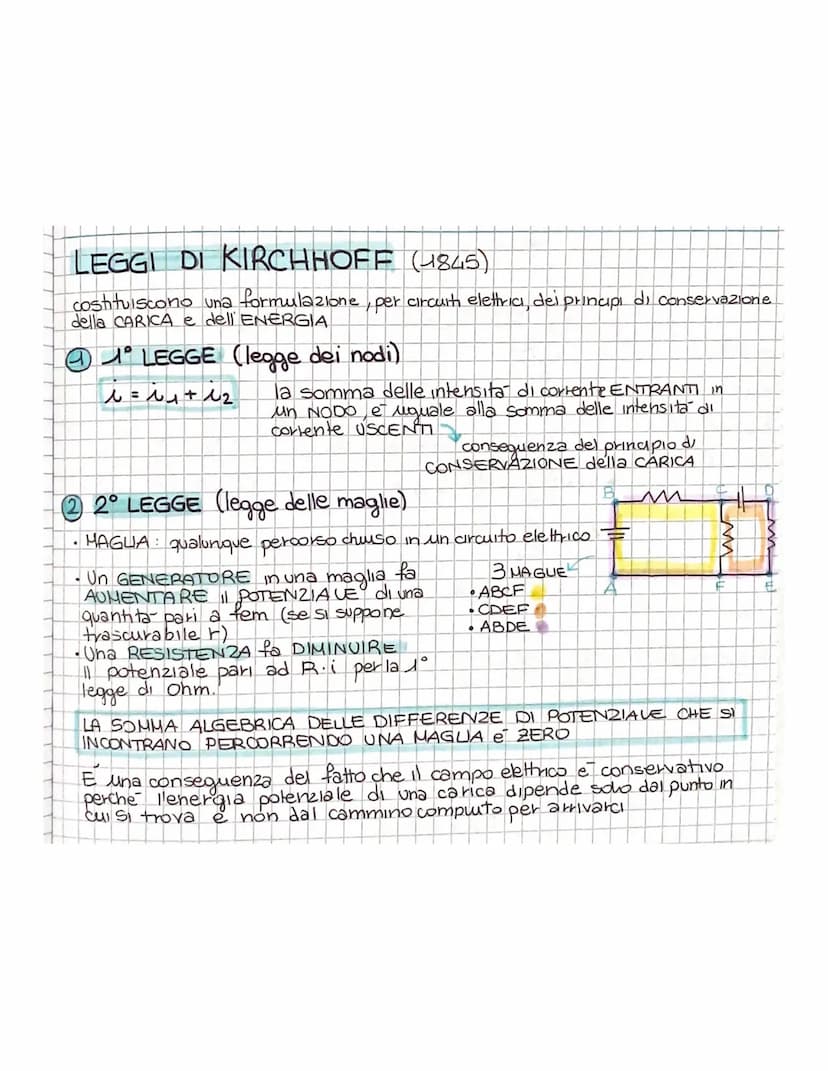 LEGGI DI KIRCHHOFF (1845)
costituiscono una formulazione, per circuiti elettrici, dei principi di conservazione
della CARICA e dell'ENERGIA
1 1° LEGGE (legge dei nodi)
i = i1 + i2
la somma delle intensità di corrente ENTRANTI in
un NODO, è uguale alla somma delle intensità di
corrente USCENTI
conseguenza del principio di
CONSERVAZIONE della CARICA
2 2° LEGGE (legge delle maglie)
• MAGLIA: qualunque percorso chiuso in un circuito elettrico
B C D
A F E
• Un GENERATORE in una maglia fa
AUMENTARE il POTENZIALE di una
quantità pari a fem (se si suppone
trascurabile r)
• Una RESISTENZA fa DIMINUIRE
il potenziale pari ad R·i per la 1°
legge di Ohm.
3 MAGLIE
• ABCF
• CDEF
• ABDE
LA SOMMA ALGEBRICA DELLE DIFFERENZE DI POTENZIALE CHE SI
INCONTRANO PERCORRENDO UNA MAGLIA è ZERO
È una conseguenza del fatto che il campo elettrico è conservativo
perché l'energia potenziale di una carica dipende solo dal punto in
cui si trova e non dal cammino compiuto per arrivarci